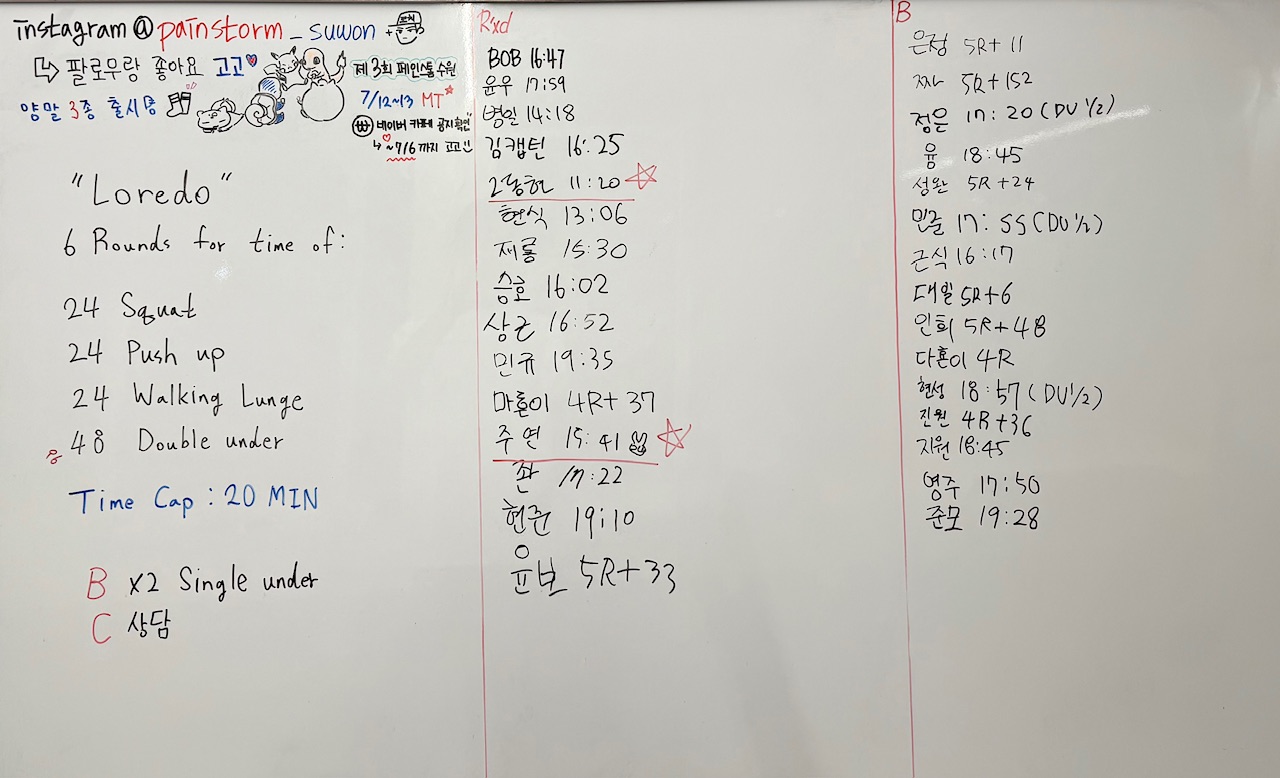 instagram@painstorm_suwon +코치
↳ 팔로우랑 좋아요 고고
양말 3종 출시중
제3회 페인스톰수원
7/12~13 MT
네이버 카페 공지확인
↳ ~7/6까지 고고
"Loredo"
6 Rounds for time of:
24 Squat
24 Push up
24 Walking Lunge
48 Double under
Time Cap : 20 MIN
B x2 Single under
C 상담
Rxd
BOB 16:47
윤우 17:59
병일 14:18
김캡틴 16:25
2동현 11:20
현식 13:06
재룡 15:30
승호 16:02
상근 16:52
민규 19:35
마흔이 4R+37
주연 15:41
좐 17:22
현준 19:10
윤보 5R+33
B
은정 5R+11
5R+152
정은 17:20(DU 1/2)
융 18:45
성완 5R+24
민준 17:55(DU 1/2)
근식 16:17
대일 5R+6
인희 5R+48
다흔이 4R
현성 18:57(DU 1/2)
진원 4R+36
지원 18:45
영주 17:50
준모 19:28